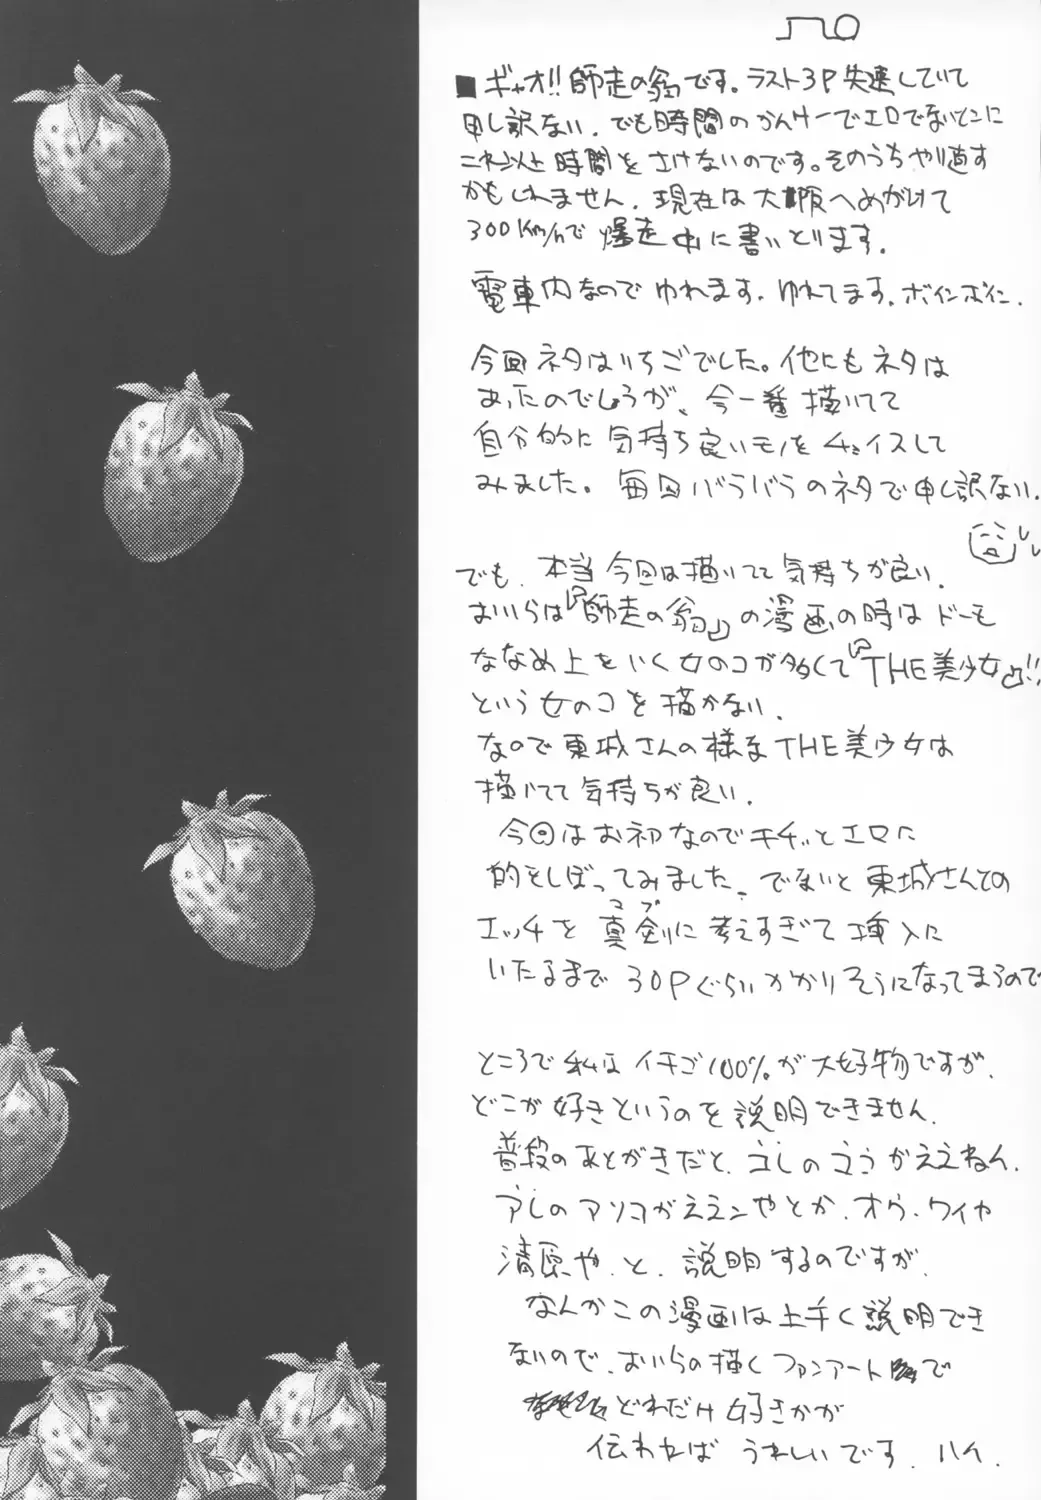 ■ギャオ!!師走の翁です。ラスト3P失速していて
申し訳ない。でも時間のかんけーでエロでないとこに
これ以上時間をさけないのです。そのうちやり直す
かもしれません。現在は大阪へめがけて
300Km/hで爆走中に書いとります。
電車内なのでゆれます。ゆれてます。ボインボイン.
今回ネタはいちごでした。他にもネタは
あったのでしょうが、今一番描いてて
自分的に気持ち良いモノをチョイスして
みました。毎回バラバラのネタで申し訳ない.
でも、本当今回は描いてて気持ちが良い.
おいらは『師走の翁』の漫画の時はドーモ
ななめ上をいく女のコが多くて『THE美少女』!!
という女のコを描かない.
なので東城さんの様なTHE美少女は
描いてて気持ちが良い.
今回はお初なのでキチッとエロに
的をしぼってみました。でないと東城さんでの
エッチを真剣に考えすぎて挿入に
いたるまで30Pぐらいかかりそうになってまうので
ところで私はイチゴ100%が大好物ですが、
どこが好きというのを説明できません.
普段のあとがきだと、コレのココがええねん.
アレのアソコがええンやとか、オウ、ワイや
清原や、と、説明するのですが、
なんかこの漫画は上手く説明でき
ないので、おいらの描くファンアートで
どれだけ好きかが
伝われば うれしいです. ハイ.